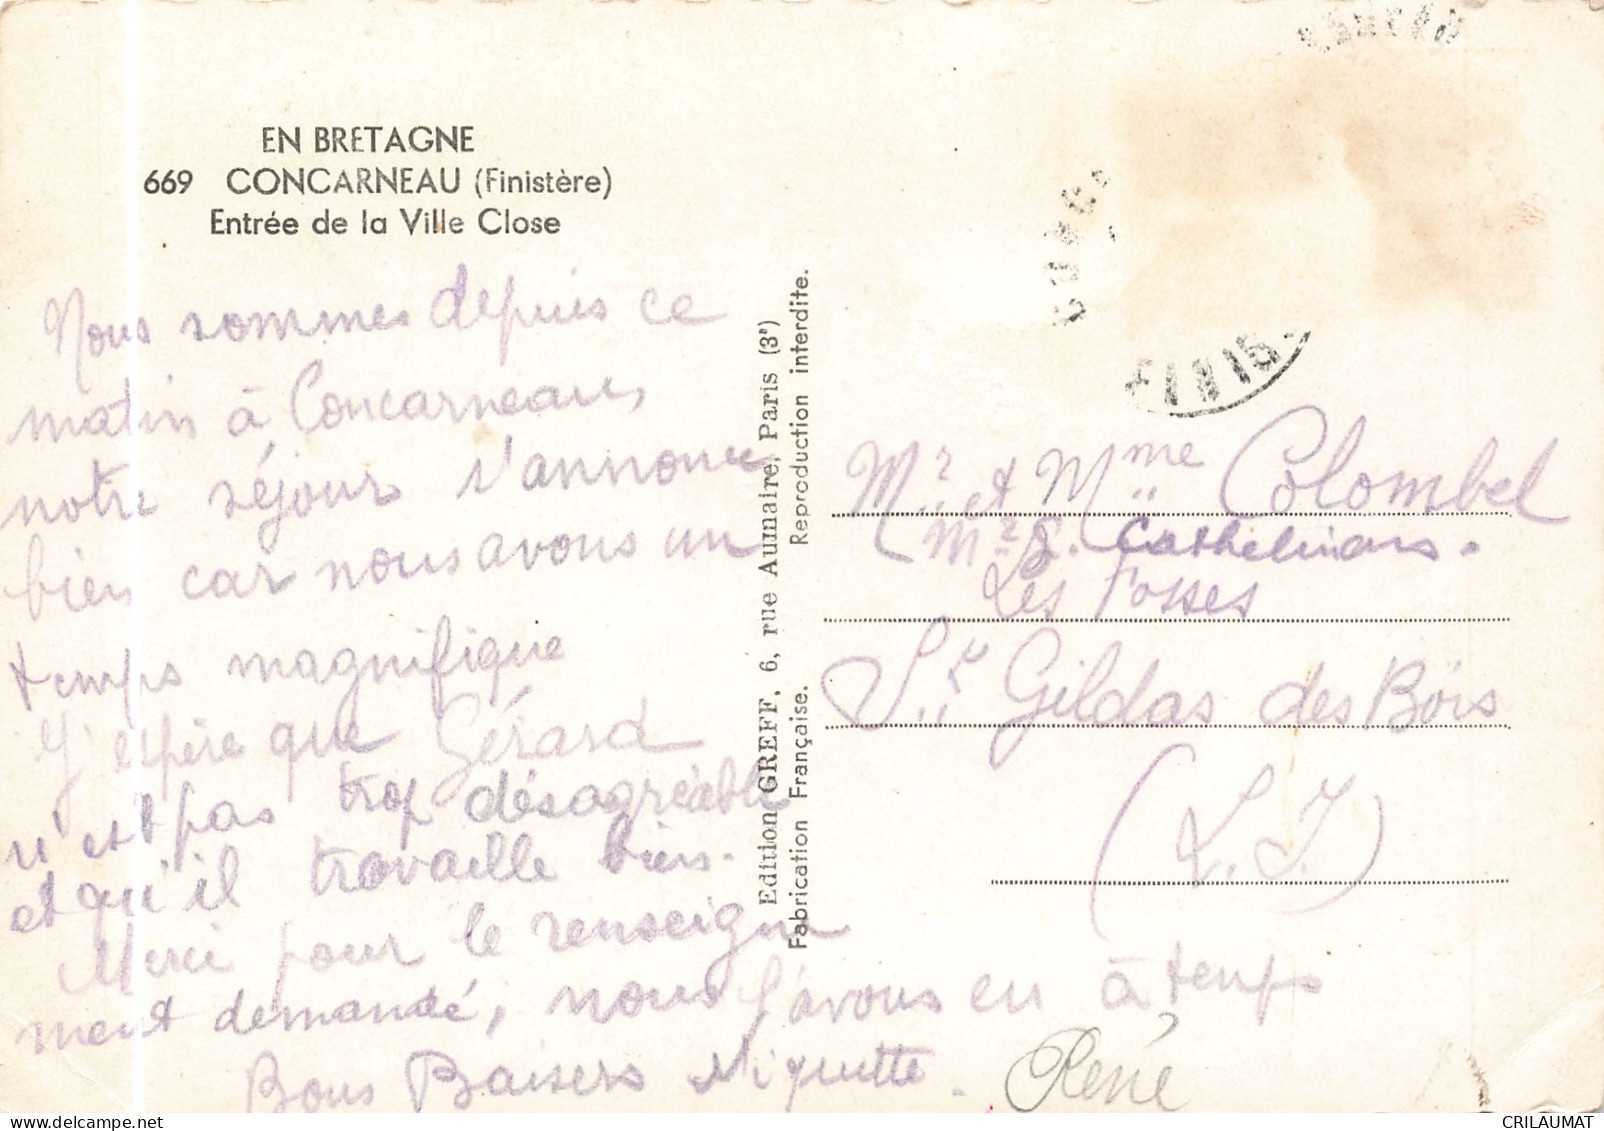 EN BRETAGNE
669 CONCARNEAU (Finistère)
Entrée de la Ville Close
Nous sommes depuis ce
matin à Concarneau,
notre séjour s'annonce
bien car nous avons un
temps magnifique
J'espère que Gérard
n'est pas trop désagréable
et qu'il travaille bien.
Merci pour le renseigne
ment demandé, nous l'avons eu à temps
Bons Baisers Niquette.
René
Edition GREFF, 6, rue Aumaire, Paris (3e)
Fabrication Française. Reproduction interdite.
Mr. et Mme Colombel
Les Fosses
St. Gildas des Bois
(L. I.)
CRILAUMAT